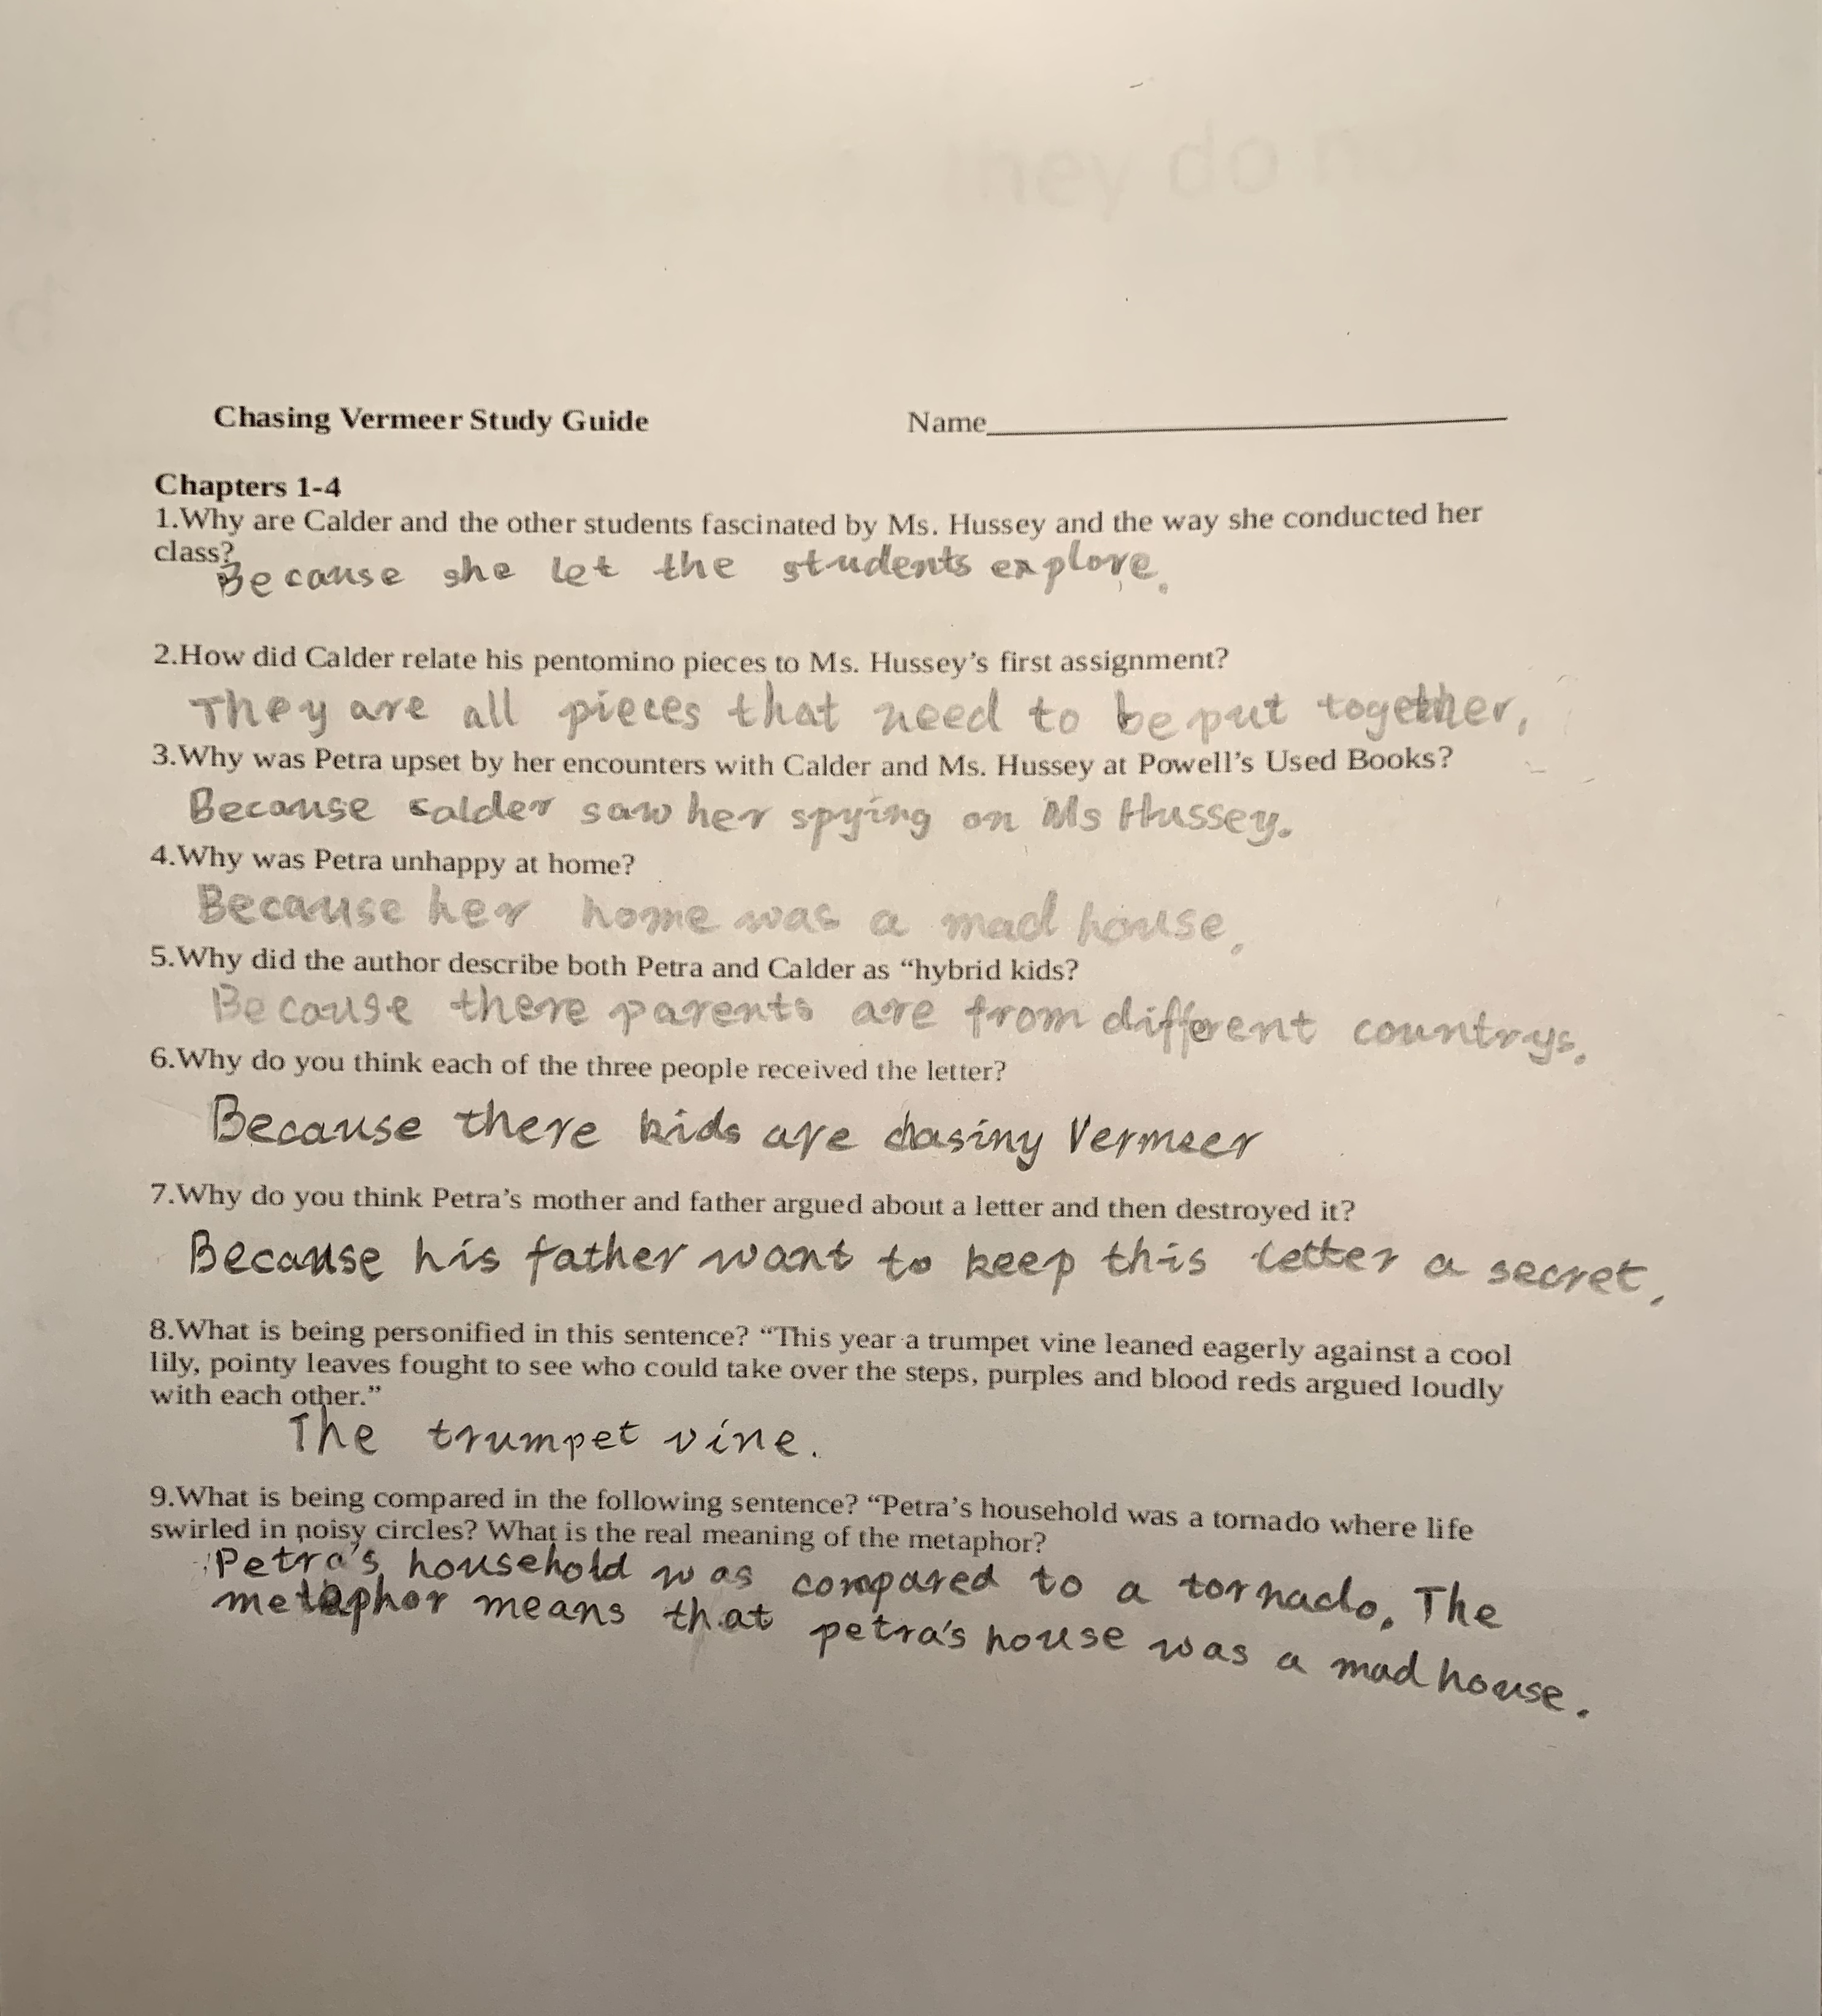 they do no
Chasing Vermeer Study Guide Name
Chapters 1-4
1.Why are Calder and the other students fascinated by Ms. Hussey and the way she conducted her
class?
Because she let the students explore.
2.How did Calder relate his pentomino pieces to Ms. Hussey's first assignment?
They are all pieces that need to be put together,
3.Why was Petra upset by her encounters with Calder and Ms. Hussey at Powell's Used Books?
Because calder saw her spying on Ms Hussey.
4.Why was Petra unhappy at home?
Because her home was a mad house.
5.Why did the author describe both Petra and Calder as “hybrid kids?
Because there parents are from different countrys.
6.Why do you think each of the three people received the letter?
Because there kids are chasing Vermeer
7.Why do you think Petra's mother and father argued about a letter and then destroyed it?
Because his father want to keep this letter a secret.
8.What is being personified in this sentence? “This year a trumpet vine leaned eagerly against a cool
lily, pointy leaves fought to see who could take over the steps, purples and blood reds argued loudly
with each other.”
The trumpet vine.
9.What is being compared in the following sentence? “Petra's household was a tornado where life
swirled in noisy circles? What is the real meaning of the metaphor?
Petra's household was compared to a tornado. The
metaphor means that petra's house was a mad house.